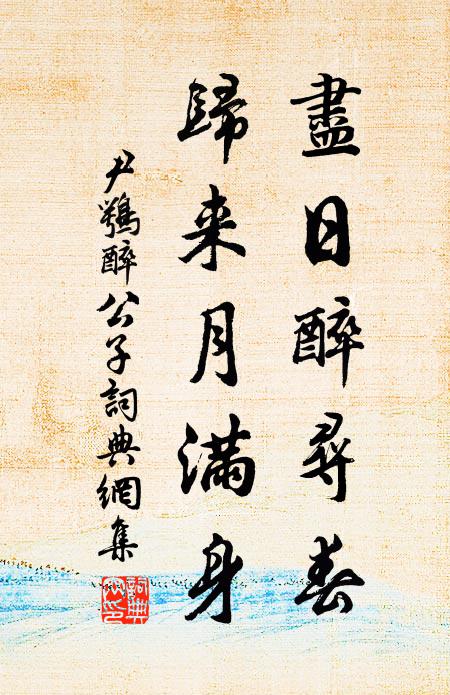 盡日醉尋春
歸来月滿身
尹鶚醉公子詞典網集